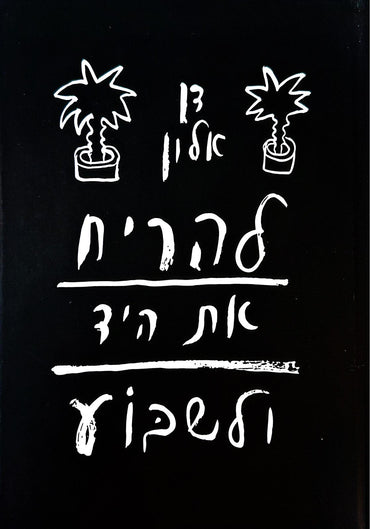 דן
אלון
להריח
את היד
ולשבוֹע